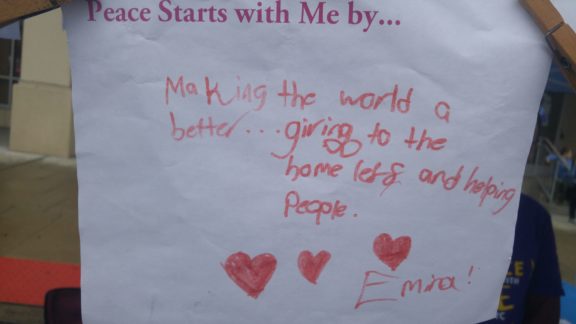 Peace Starts with Me by...
Making the world a
better... giving to the
home lefs and helping
People.
Emira!